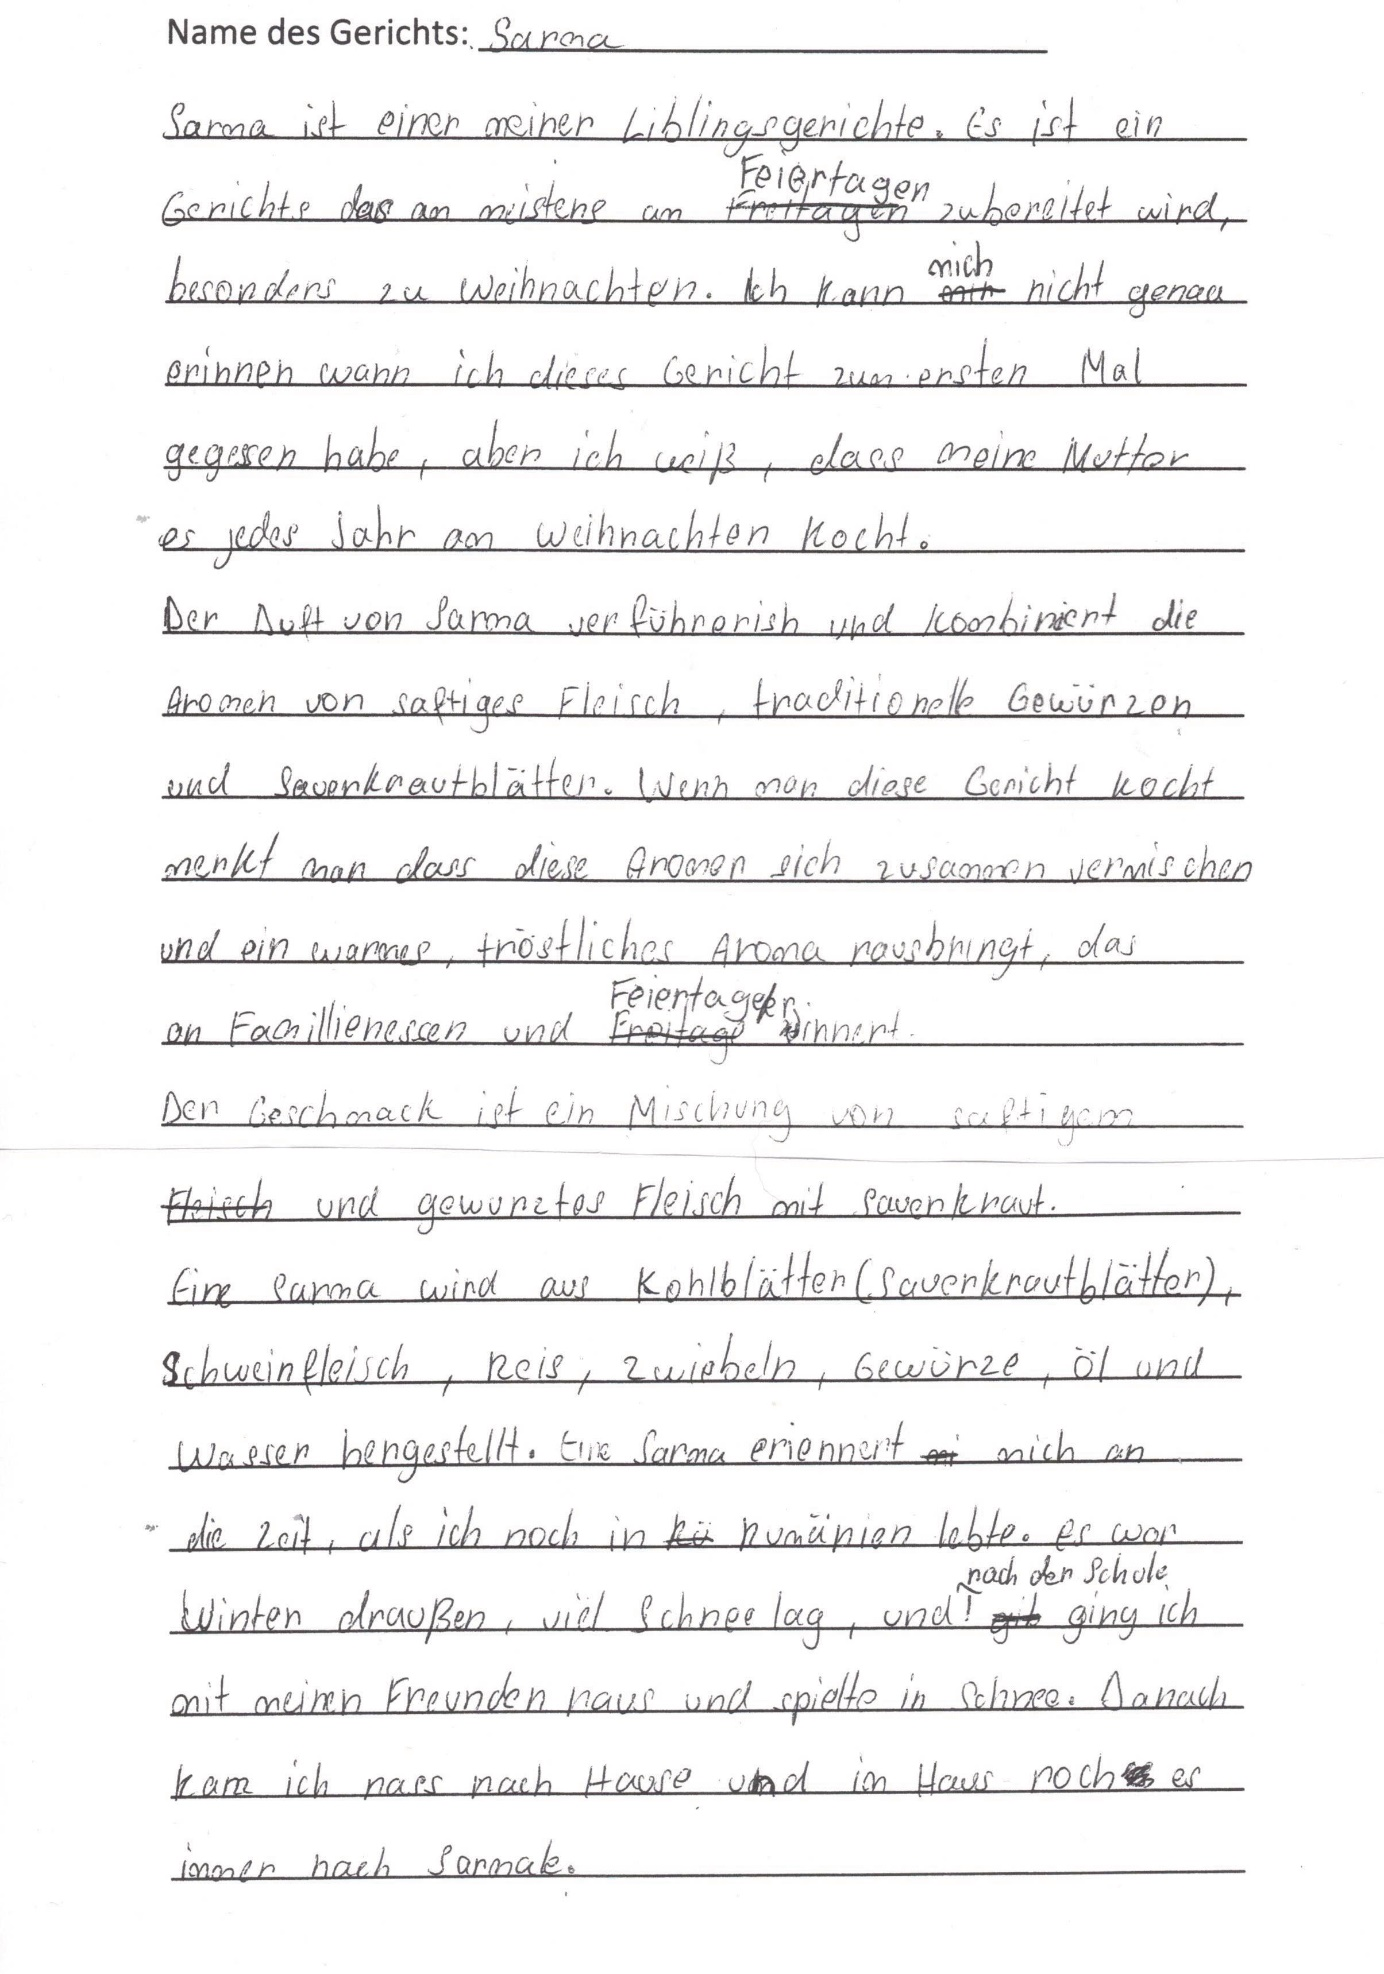 Name des Gerichts: Sarma
Sarma ist einer meiner Liblingsgerichte. Es ist ein
Feiertagen
Gerichte das am meistens am Freitagen zubereitet wird,
mich
besonders zu Weihnachten. Ich kann mih nicht genau
erinnen wann ich dieses Gericht zum ersten Mal
gegessen habe, aber ich weiß, dass meine Mutter
es jedes Jahr an Weihnachten kocht.
Der Duft von Sarma verführerish und kombiniert die
Aromen von saftiges Fleisch, traditionelle Gewürzen
und Sauerkrautblätter. Wenn man diese Gericht kocht
merkt man dass diese Aromen sich zusammen vermischen
und ein warmes, tröstliches Aroma rausbringt, das
Feiertage er
an Famillienessen und Freitage innert.
Der Geschmack ist ein Mischung von saftigem
Fleisch und gewurztes Fleisch mit Sauerkraut.
Eine Sarma wird aus Kohlblätter (Sauerkrautblätter),
Schweinfleisch, Reis, Zwiebeln, Gewürze, Öl und
Wasser hergestellt. Eine Sarma eriennert mi mich an
die Zeit, als ich noch in Rü Rumänien lebte. es war
nach der Schule
Winter draußen, viel Schnee lag, und ging ich
mit meinen Freunden raus und spielte in Schnee. Danach
kam ich nass nach Hause und im Haus roch es
immer nach Sarmale.